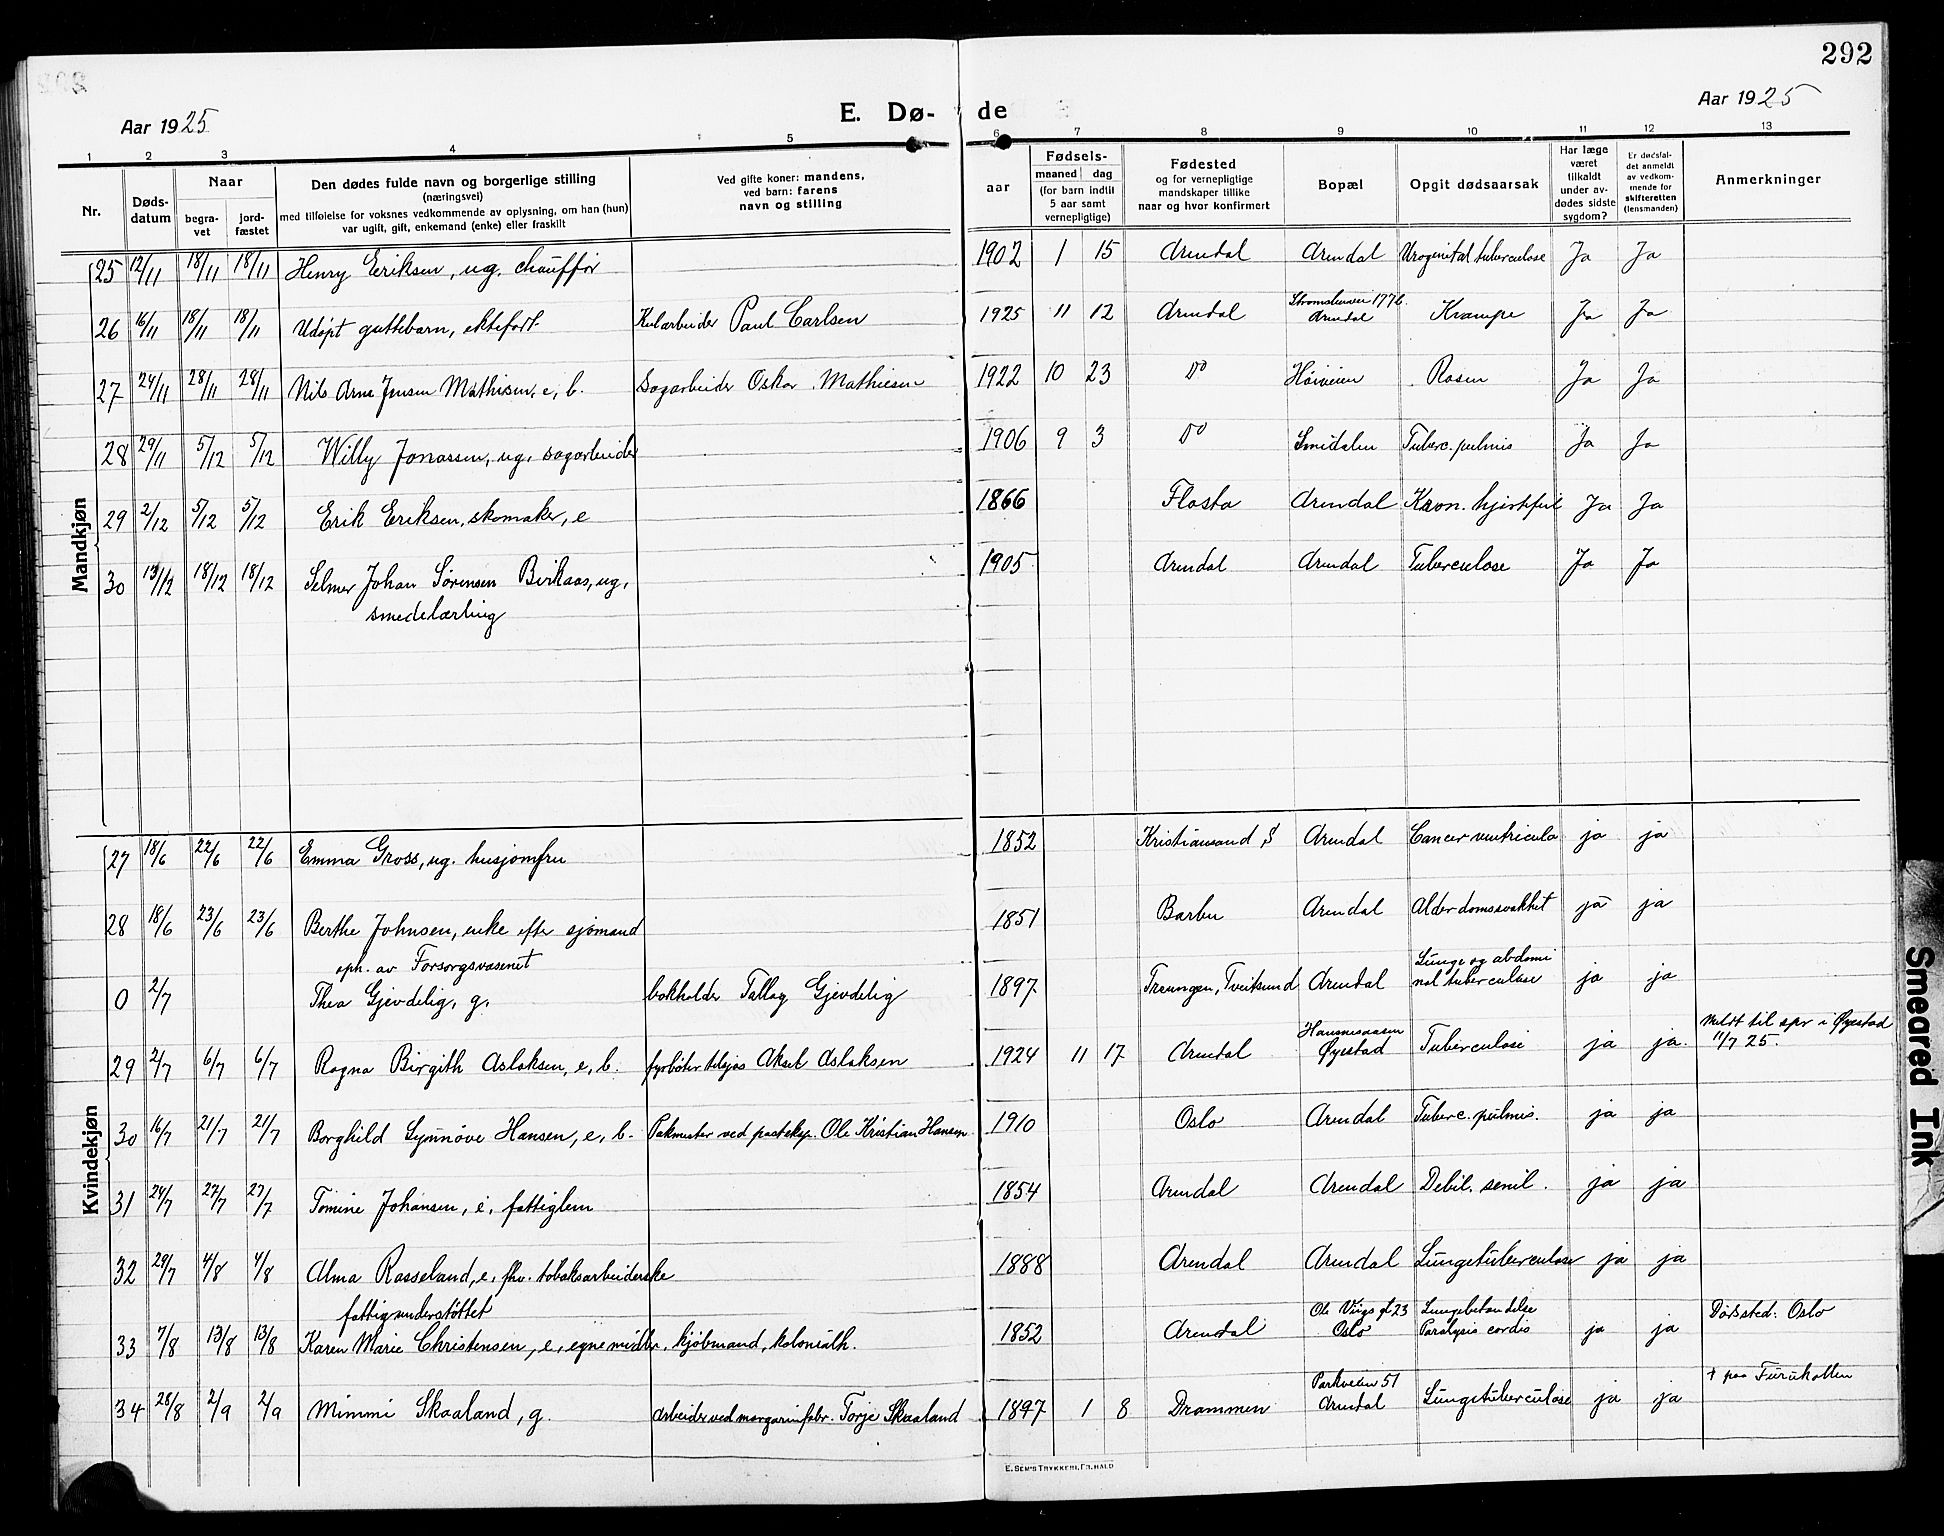 292
Aar 1925
E. Dø- de
Aar 1925
1 2 3 4 5 6 7 8 9 10 11 12 13
Nr.
Døds-
datum
Naar
begra-
vet
jord-
fæstet
Den dødes fulde navn og borgerlige stilling
(næringsvei)
med tilføielse for voksnes vedkommende av oplysning, om han (hun)
var ugift, gift, enkemand (enke) eller fraskilt
Ved gifte koner: mandens,
ved barn: farens
navn og stilling
aar
Fødsels-
maaned dag
(for barn indtil
5 aar samt
vernepligtige)
Fødested
og for vernepligtige
mandskaper tillike
naar og hvor konfirmert
Bopæl
Opgit dødsaarsak
Har læge
været
tilkaldt
under av-
dødes sidste
sygdom?
Er dødsfal-
det anmeldt
av vedkom-
mende for
skifteretten
(lensmanden)
Anmerkninger
Mandkjøn
25 12/11 18/11 18/11 Henry Eriksen, ug. chauffør 1902 1 15 Arendal Arendal Urogenital tuberculose Ja Ja
26 16/11 18/11 18/11 Udøpt guttebarn, ektefødt. Kularbeider Paul Carlsen 1925 11 12 Arendal Strømsbuvei 177 b. Arendal Krampe Ja Ja
27 24/11 28/11 28/11 Nils Arne Jensen Mathisen, e, b. Sagarbeider Oskar Mathiesen 1922 10 23 Do Høiveien Rosen Ja Ja
28 29/11 5/12 5/12 Willy Jonassen, ug, sagarbeider 1906 9 3 Do Smidalen Tuberc. pulmis Ja Ja
29 2/12 5/12 5/12 Erik Eriksen, skomaker, e 1866 Flosta Arendal Kron. hjertefeil Ja Ja
30 13/12 18/12 18/12 Selmer Johan Sørensen Birkaas, ug, 1905 Arendal Arendal Tuberculose Ja Ja
smedelærling
Kvindekjøn
27 18/6 22/6 22/6 Emma Gross, ug. husjomfru 1852 Kristiansand S Arendal Cancer ventricula ja ja
28 18/6 23/6 23/6 Berthe Johnsen, enke efter sjømand 1851 Barbu Arendal Alderdomssvakhet ja ja
oph. av Forsorgsvæsenet
0 2/7 Thea Gjevdelig, g. bokholder Tallag Gjevdelig 1897 Treungen, Tveitsund Arendal Lunge og abdomi
nal tuberculose ja ja
29 2/7 6/7 6/7 Ragna Birgith Aslaksen, e, b. fyrbøter tilsjøs Aksel Aslaksen 1924 11 17 Arendal Øyestad Tuberculose ja ja. Meldt til spr i Øyestad
11/7 25.
30 16/7 21/7 21/7 Borghild Synnøve Hansen, e, b. Pakmester ved posteksp. Ole Kristian Hansen 1910 Oslo Arendal Tuberc. pulmis. ja ja
31 24/7 27/7 27/7 Tomine Johansen, e, fattiglem 1854 Arendal Arendal Debil. senil. ja ja
32 29/7 4/8 4/8 Alma Rosseland, e, fhv. tobaksarbeiderske 1888 Arendal Arendal Lungetuberculose ja ja
fattigunderstøttet
33 7/8 13/8 13/8 Karen Marie Christensen, e, egne midler, kjøbmand, kolonialh. 1852 Arendal Ole Vigs gt 23 Oslo Lungebetændelse
Paralysis cordis ja ja Dødssted: Oslo
34 28/8 2/9 2/9 Mimmi Skaaland, g. Arbeider ved margarinfabr. Torje Skaaland 1897 1 8 Drammen Parkveien 51
Arendal Lungetuberculose ja ja † paa Furukollen
E. SEM'S TRYKKERI, FR.HALD
Smeared Ink